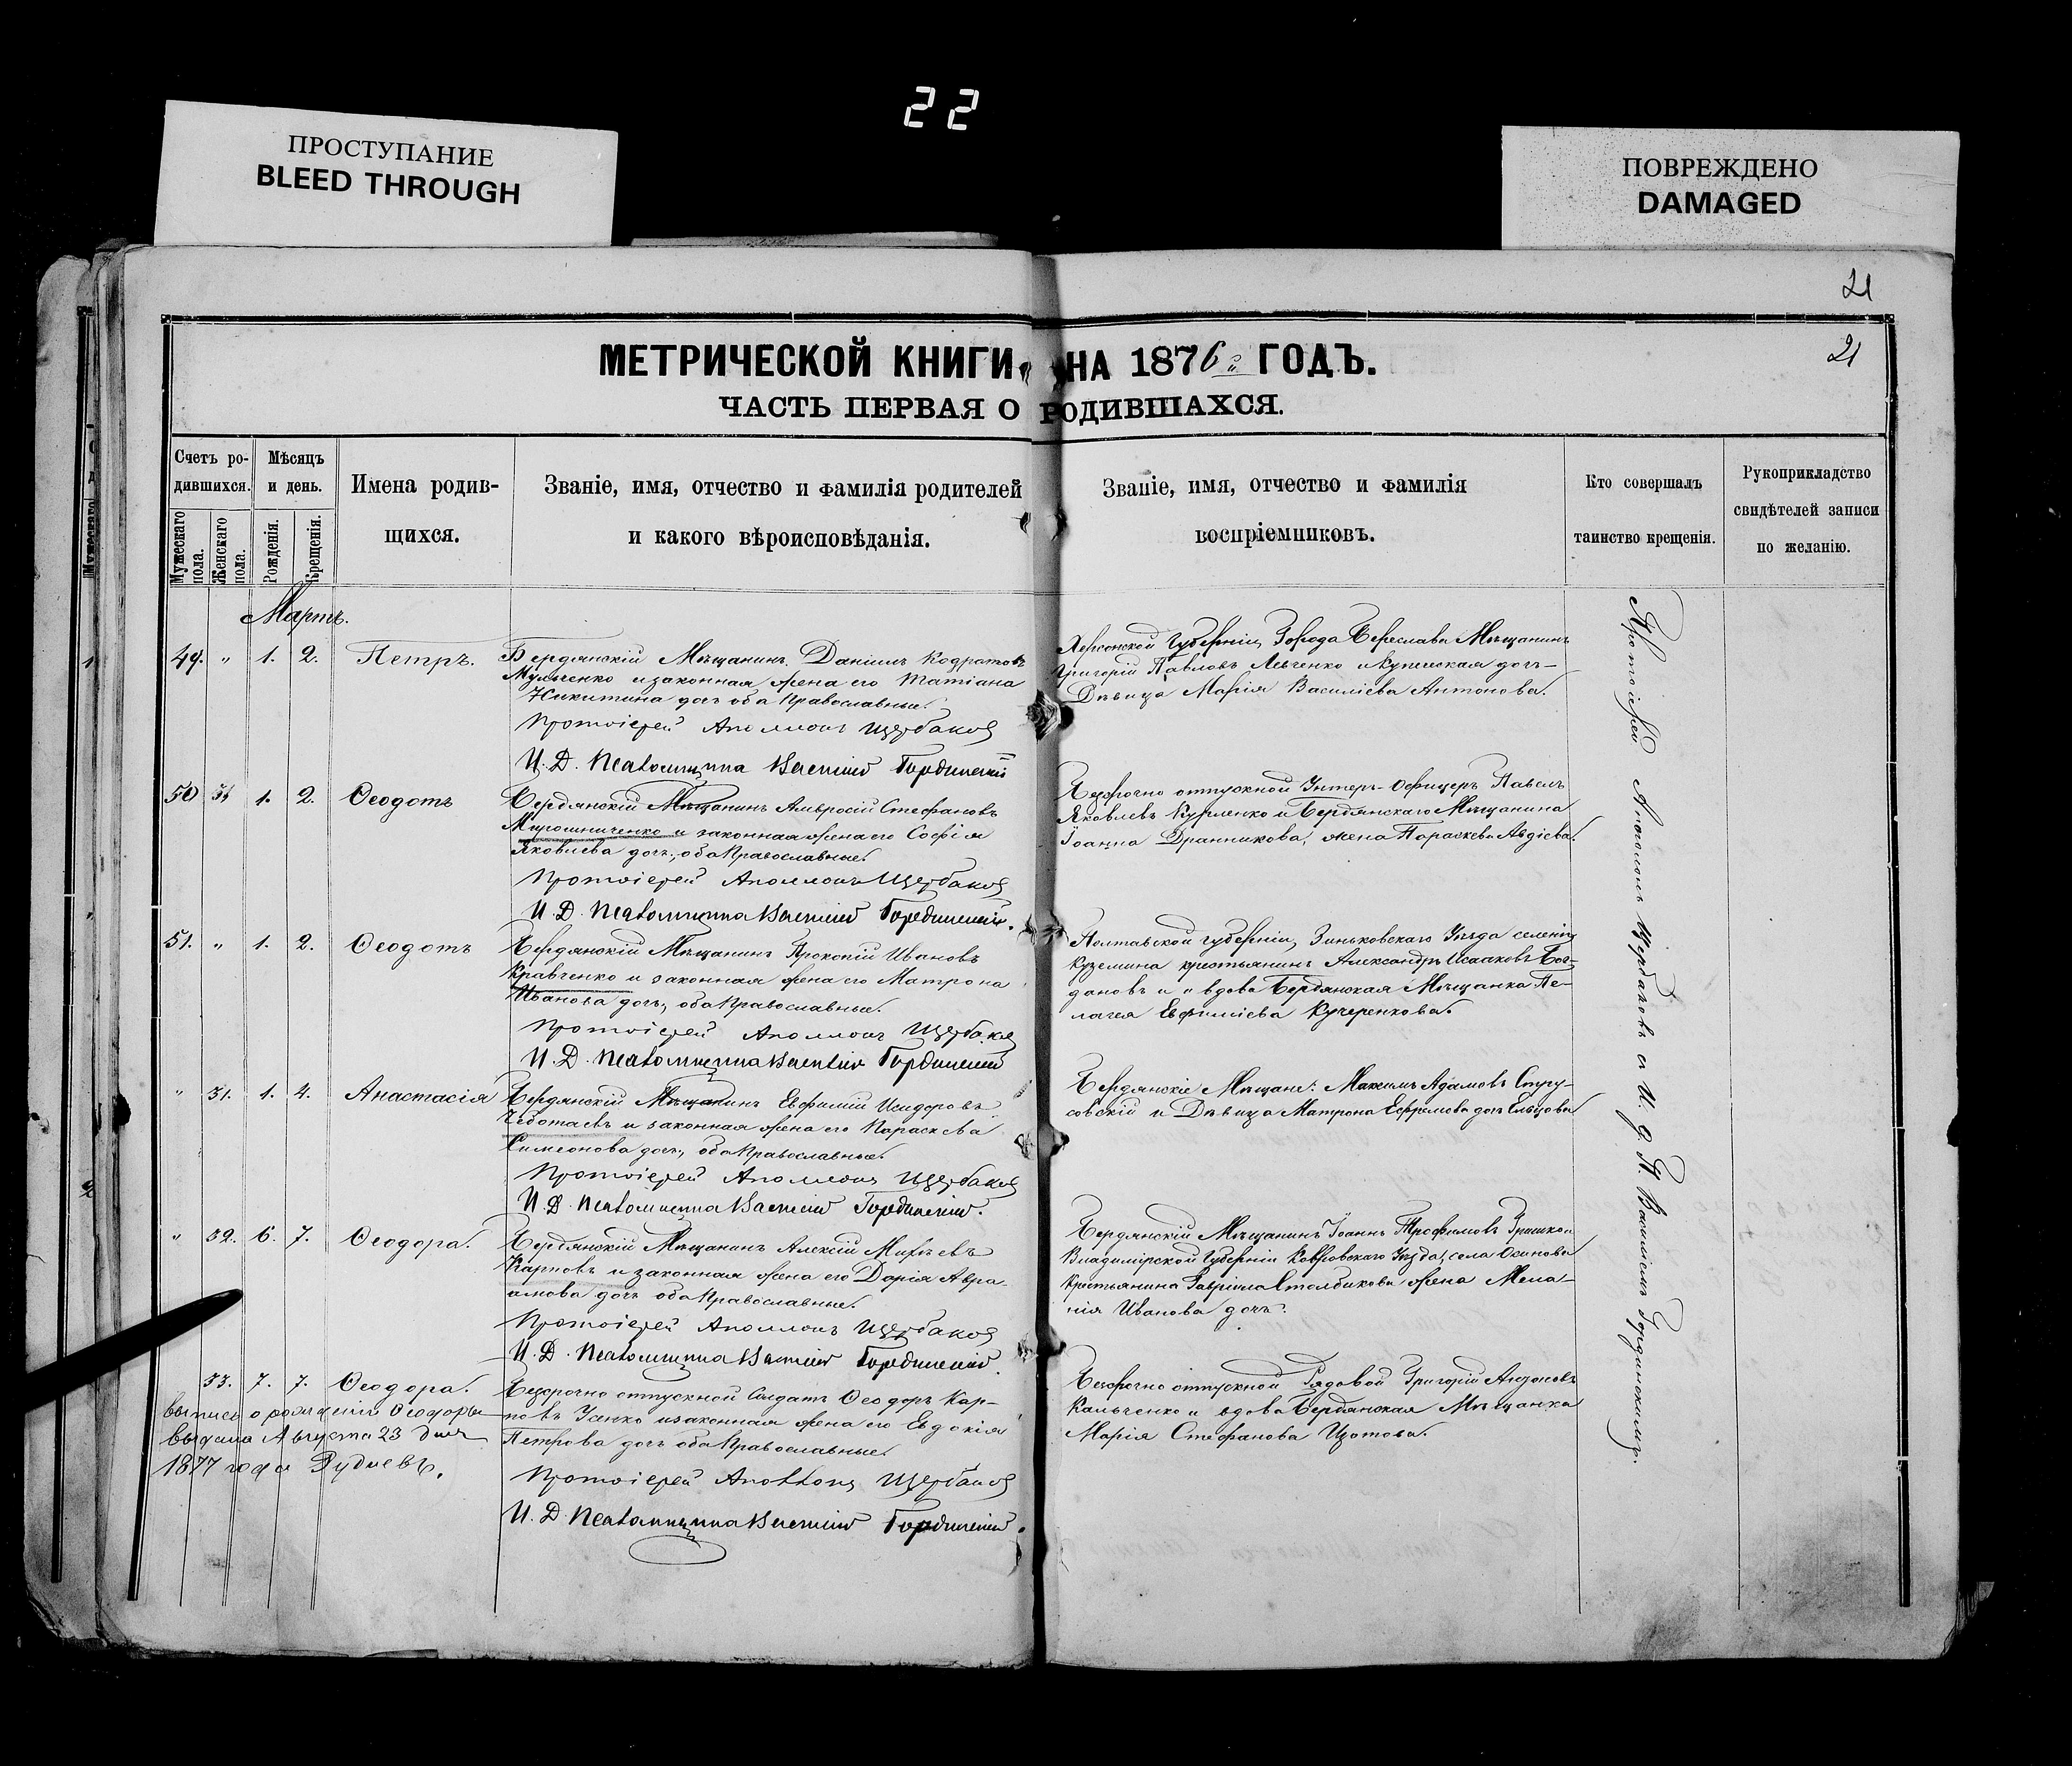 22
ПРОСТУПАНИЕ
BLEED THROUGH
ПОВРЕЖДЕНО
DAMAGED
21
21
МЕТРИЧЕСКОЙ КНИГИ НА 1876 ГОДЪ.
ЧАСТЬ ПЕРВАЯ О РОДИВШАХСЯ.
Счетъ ро-
дившихся.
Мужескаго пола.
Женскаго пола.
Мѣсяцъ
и день.
Рожденія.
Крещенія.
Имена родив-
щихся.
Званіе, имя, отчество и фамилія родителей
и какого вѣроисповѣданія.
Званіе, имя, отчество и фамилія
воспріемниковъ.
Кто совершалъ
таинство крещенія.
Рукоприкладство
свидѣтелей записи
по желанію.
Мартъ.
49. " 1. 2. Петръ.
Бердянскій Мѣщанинъ Даніилъ Кодратовъ
и законная жена его Татіана
Никитина дочь оба Православные.
Протоіерей Аполлонъ Щербаковъ
И. Д. Псаломщика Василій Гординскій
Херсонской Губерніи Города Береслава Мѣщанинъ
Григорій Павловъ Левченко и Купеческая дочь
Дѣвица Марія Василіева Антонова.
50 1. 2. Ѳеодотъ
Бердянскій Мѣщанинъ Амвросій Стефановъ
Мирошниченко и законная жена его Софія
Яковлева дочь, оба Православные.
Протоіерей Аполлонъ Щербаковъ
И. Д. Псаломщика Василій Гординскій.
Безсрочно отпускной Унтеръ-Офицеръ Павелъ
Яковлевъ Курленко и Бердянскаго Мѣщанина
Іоанна Дранникова, жена Параскева Авдіева.
51. " 1. 2. Ѳеодотъ
Бердянскій Мѣщанинъ Прокопій Ивановъ
Кравченко и законная жена его Матрона
Иванова дочь, оба Православные.
Протоіерей Аполлонъ Щербаковъ
И. Д. Псаломщика Василій Гординскій
Полтавской губерніи, Зиньковскаго Уѣзда селенія
Куземина крестьянинъ Александръ Исааковъ Бог-
дановъ и вдова Бердянская Мѣщанка Пе-
лагея Евфиміева Кучеренкова.
" 31. 1. 4. Анастасія
Бердянскій Мѣщанинъ Евфимій Исидоровъ
Чеботаевъ и законная жена его Параскева
Симеонова дочь, оба Православные.
Протоіерей Аполлонъ Щербаковъ
И. Д. Псаломщика Василій Гординскій.
Бердянскіе Мѣщане: Максимъ Адамовъ
и Дѣвица Матрона Ефремова дочь Ельцова
" 32. 6. 7. Ѳеодора.
Бердянскій Мѣщанинъ Алексій Михѣевъ
Карповъ и законная жена его Дарія Авра-
амова дочь оба Православные.
Протоіерей Аполлонъ Щербаковъ
И. Д. Псаломщика Василій Гординскій.
Бердянскій Мѣщанинъ Іоаннъ Трофимовъ
Владимірской Губерніи Ковровскаго Уѣзда, села Осинова
Крестьянина Гавріила Столбикова жена Мела-
нія Иванова дочь.
33. 7. 7. Ѳеодора.
Безсрочно отпускной Солдатъ Ѳеодоръ Кар-
повъ и законная жена его Евдокія
Петрова дочь оба Православные.
Протоіерей Аполлонъ Щербаковъ
И. Д. Псаломщика Василій Гординскій.
Безсрочно отпускной Рядовой Григорій Антоновъ
Кальченко и вдова Бердянская Мѣщанка
Марія Стефанова Изотова.
выпись о рожденіи Ѳеодоры
выдана Августа 23 дня
1877 года Рудневъ.
Протоіерей Аполлонъ Щербаковъ съ И. д. П. Василіемъ Гординскимъ.